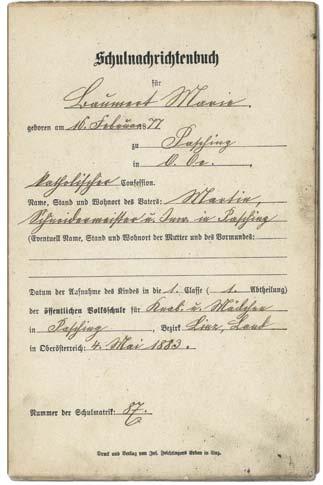 Schulnachrichtenbuch
für
Baumert Marie.
geboren am 16. Februar 77
zu Pasching
in O. Oe.
katholischer Confession.
Name, Stand und Wohnort des Vaters: Martin,
Schneidermeister u. Inw. in Pasching
(Eventuell Name, Stand und Wohnort der Mutter und des Vormundes:
Datum der Aufnahme des Kindes in die 1. Classe ( 1. Abtheilung)
der öffentlichen Volksschule für Knab. u. Mädchen
in Pasching, Bezirk Linz, Land
in Oberösterreich: 4. Mai 1883.
Nummer der Schulmatrik: 87.
Druck und Verlag von Jos. Feichtingers Erben in Linz.